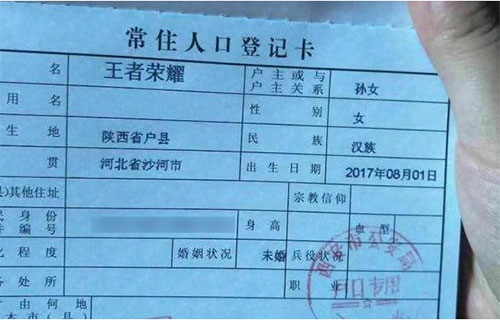 常住人口登记卡
名 王者荣耀 户主或与户主关系 孙女
用名 性别 女
生地 陕西省户县 民族 汉族
贯 河北省沙河市 出生日期 2017年08月01日
)其他住址 宗教信仰
民身份件编号 身高 血型
化程度 婚姻状况 未婚 兵役状况
务处所 职业
由何地
本市(县)
西安市公安局
户口专用